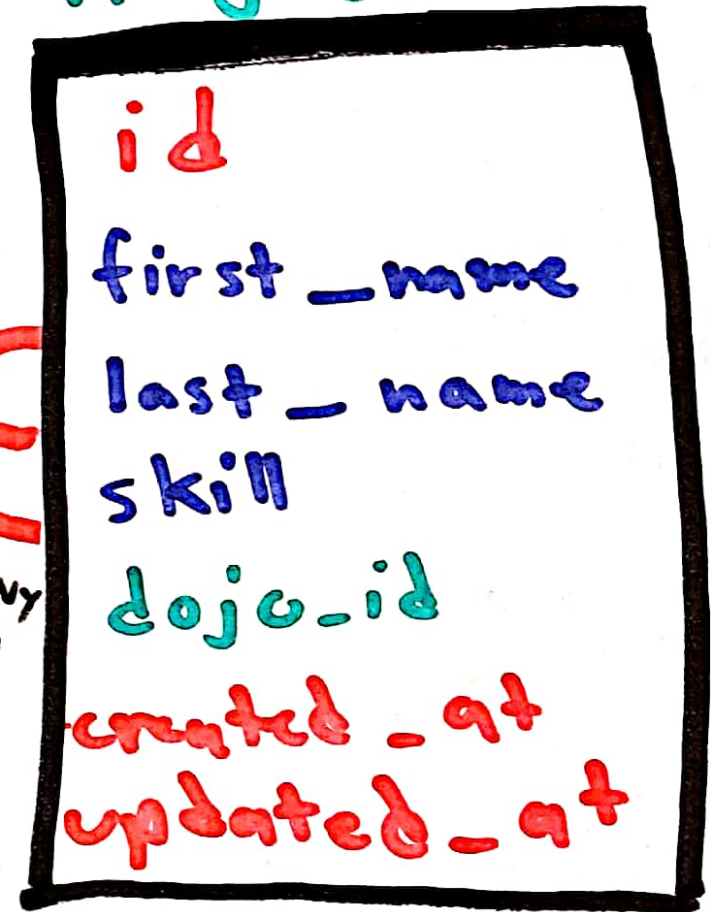 id
first_name
last_name
skill
dojo_id
created_at
updated_at